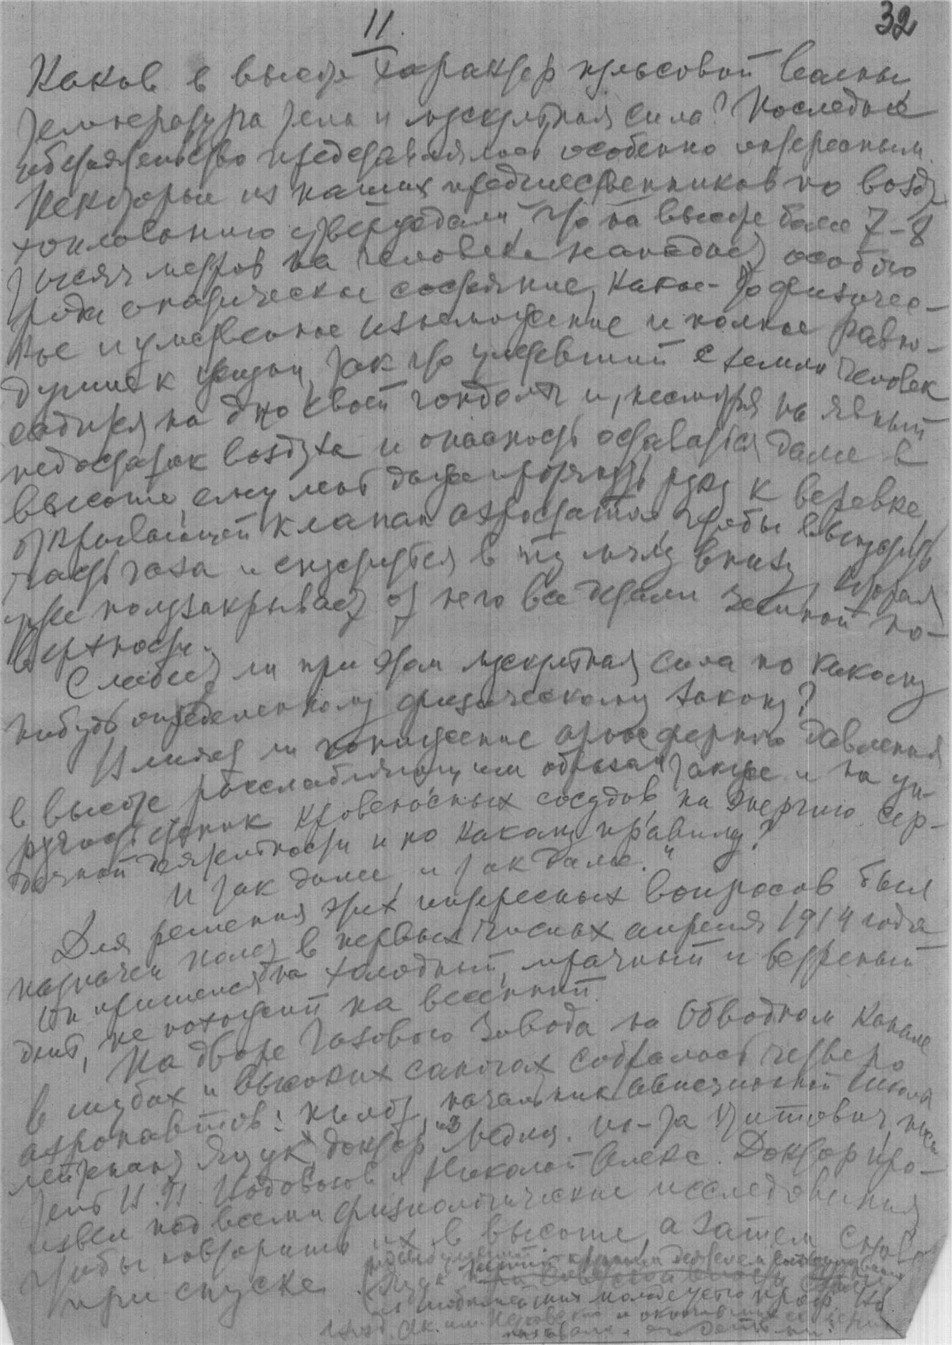 11.
32
Каков в высоте характер пульсовой волны
температура тела и мускульная сила? Последнее
обстоятельство представлялось особенно интересным.
Некоторые из наших предшественников по возду
хоплаванию утверждали, что на высоте более 7–8
тысяч метров на человека нападает особого
рода апатическое состояние, какое-то физичес-
кое и умственное изнеможение и полное равно-
душие к жизни, так что улетевший с земли человек
садится на дно своей гондолы и, несмотря на явный
недостаток воздуха и опасность оставаться далее в
высоте, ему лень даже протянуть руку к веревке,
открывающей клапан аэростата чтобы выпустить
часть газа и спуститься в ту мглу внизу, которая
уже полузакрывает от него все детали земной по-
верхности.
Слабеет ли при этом мускульная сила по какому
нибудь определенному физическому закону?
Влияет ли понижение атмосферного давления
в высоте расслабляющим образом также и на уп-
ругость стенок кровеносных сосудов на энергию сер-
дечной деятельности и по какому правилу?
И так далее и так далее."
Для решения этих интересных вопросов был
назначен полет в первых числах апреля 1914 года
Он пришелся на холодный, мрачный и ветреный
день, не похожий на весенний.
На дворе Газового Завода на Обводном Канале
в шубах и высоких сапогах собралось четверо
аэронавтов: пилот, начальник авиационной школы
лейтенант Яцук доктор из Медиц. ин-та Цитович, писа
тель И. И. Ясинский и Николай Алекс. Доктор про-
извел над всеми физиологические исследования
чтобы повторить их в высоте, а затем снова
при спуске